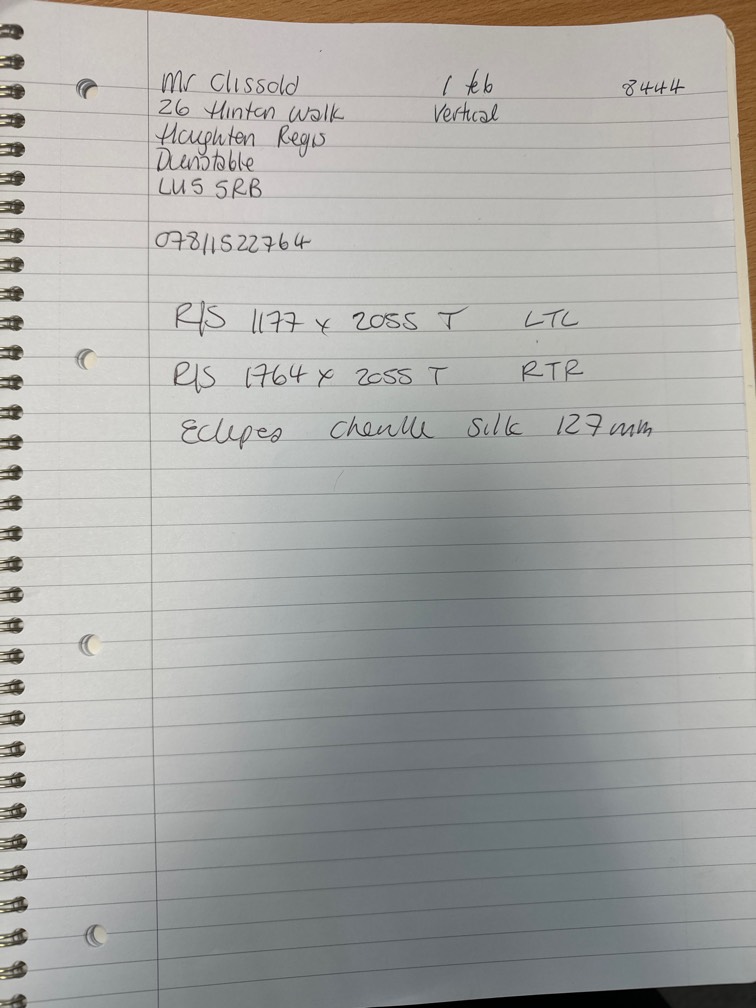 Mr Clissold 1 feb 8444
26 Hinton Walk Vertical
Houghten Regis
Dunstable
LU5 5RB
07811522764
R/S 1177 x 2055 T LTL
R/S 1764 x 2055 T RTR
Eclipes chenlle silk 127mm